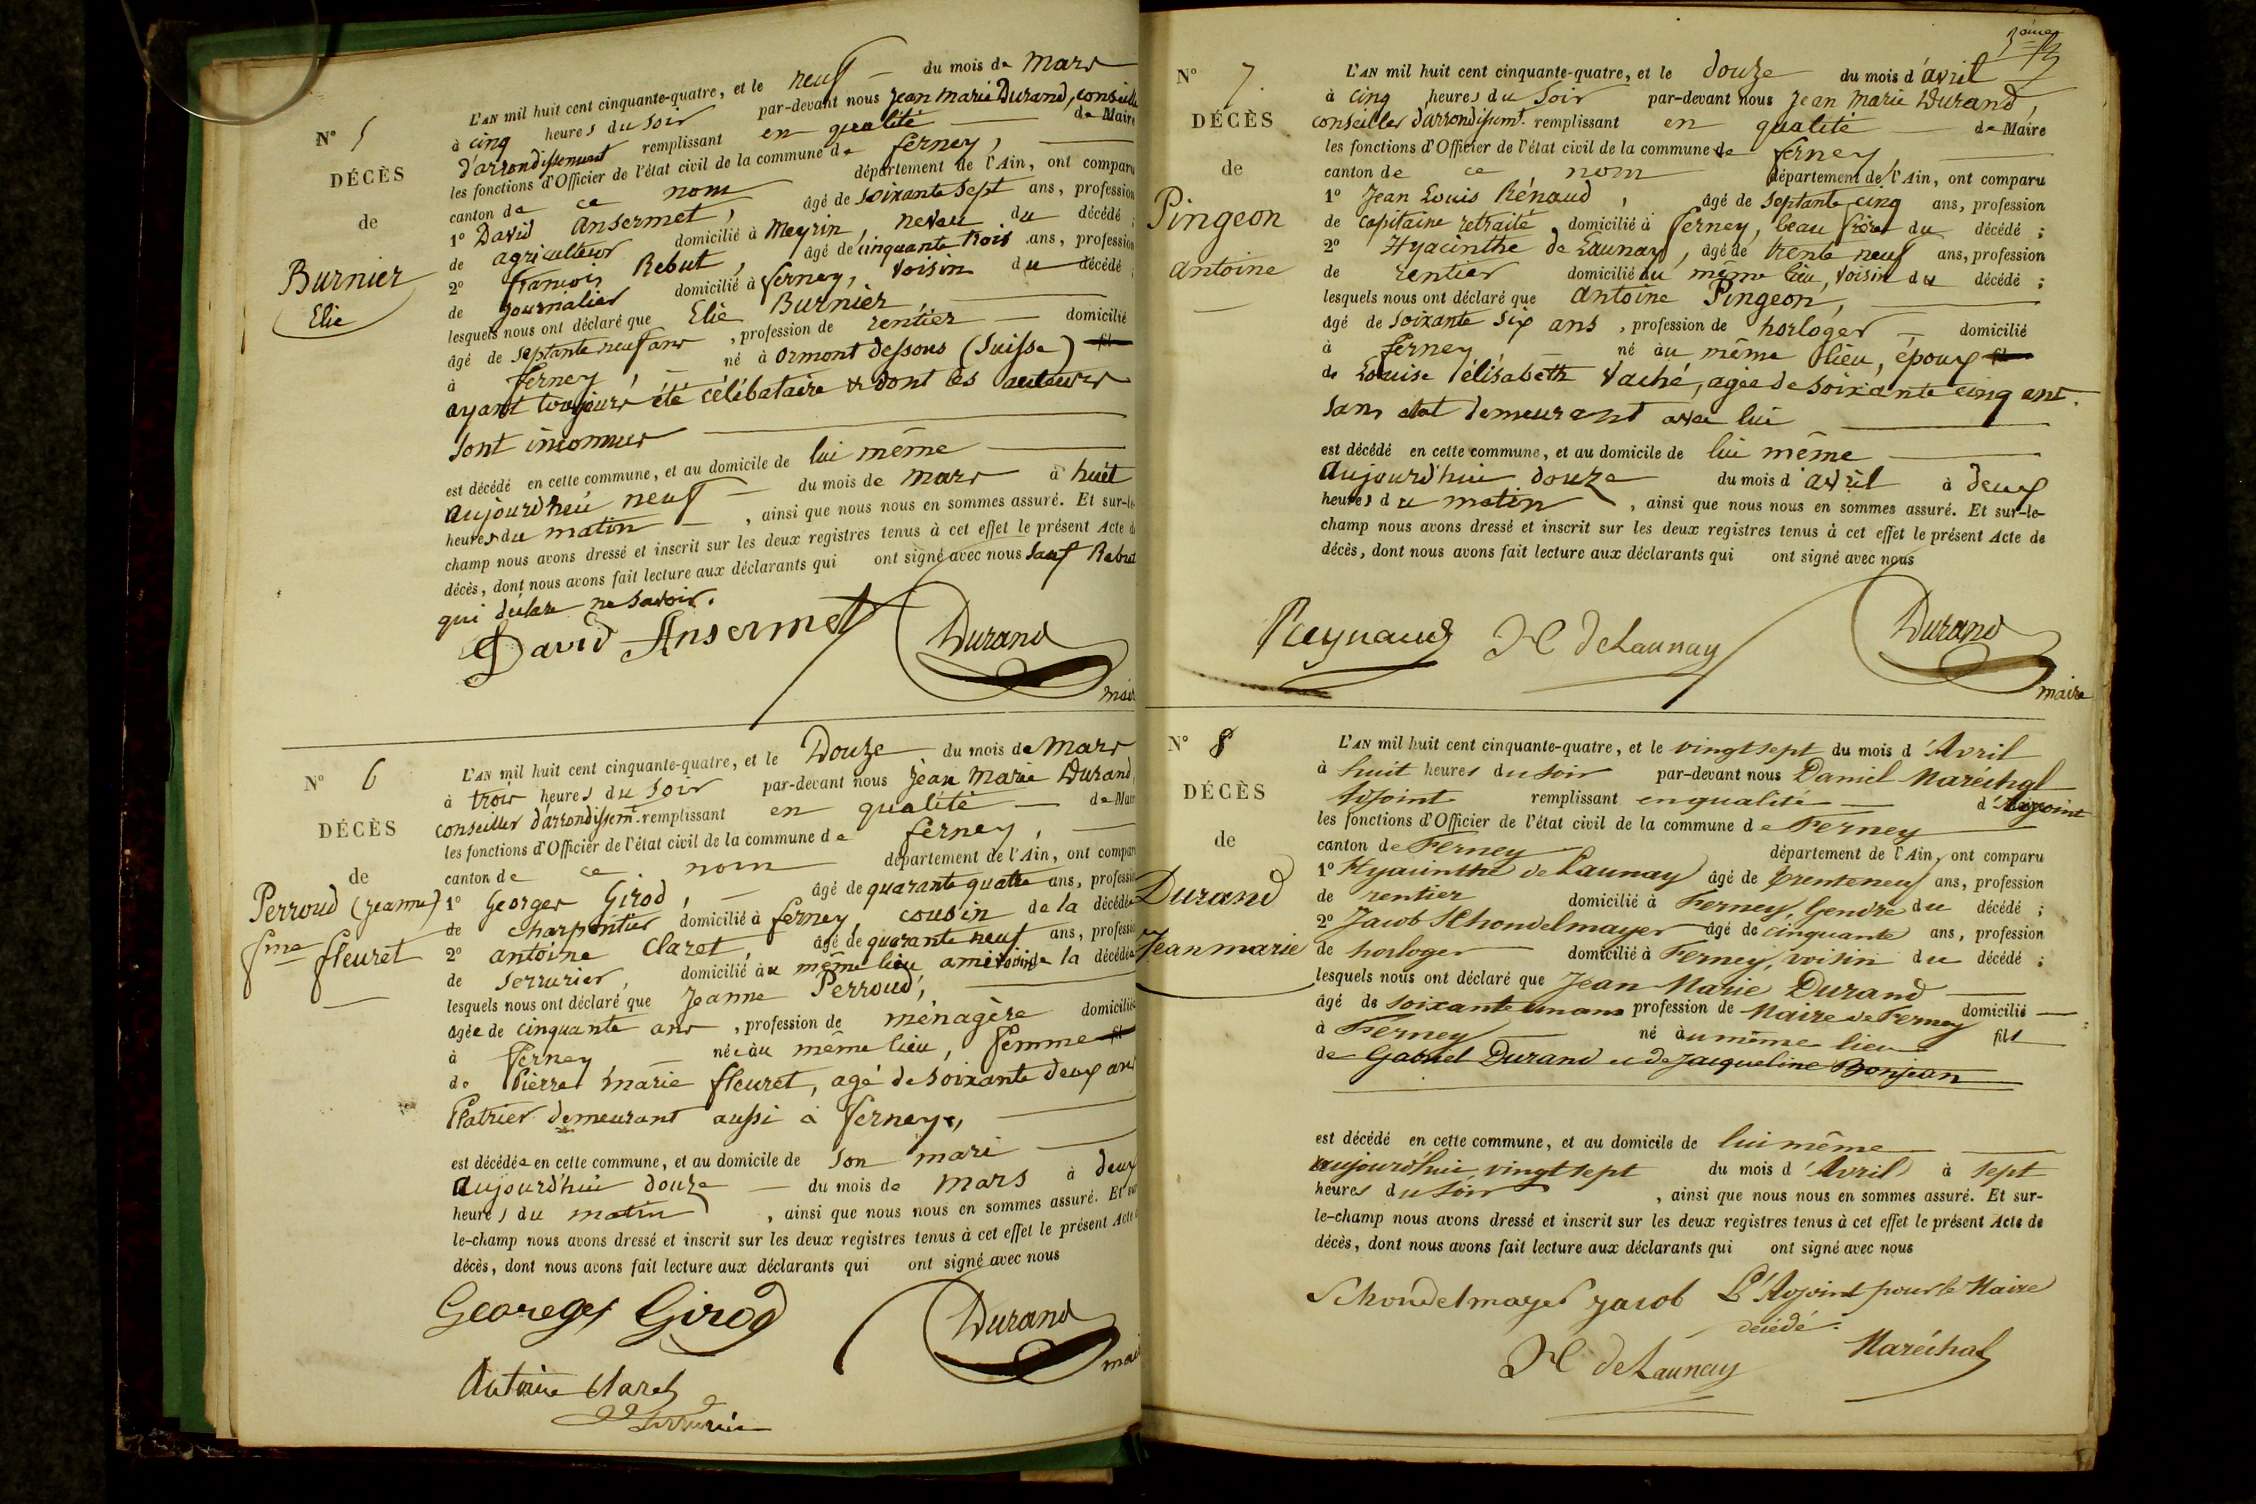 N° 5
DÉCÈS
de
Burnier
Elie
L'AN mil huit cent cinquante-quatre, et le neuf du mois de Mars
à cinq heures du soir par-devant nous Jean Marie Durand, conseiller
d'arrondissement remplissant en qualité de Maire
les fonctions d'Officier de l'état civil de la commune de ferney,
canton de ce nom département de l'Ain, ont comparu
1° David Ansermet, âgé de soixante sept ans, profession
de agriculteur domicilié à Meyrin, neveu du décédé ;
2° françois Rebut, âgé de cinquante trois ans, profession
de journalier domicilié à ferney, voisin du décédé ;
lesquels nous ont déclaré que Elie Burnier,
âgé de septante neuf ans, profession de rentier domicilié
à ferney, né à Ormont dessous (Suisse) fil
ayant toujours été célibataire & dont les auteurs
sont inconnus
est décédé en cette commune, et au domicile de lui même
aujourd'hui neuf du mois de mars à huit
heures du matin, ainsi que nous nous en sommes assuré. Et sur-le-
champ nous avons dressé et inscrit sur les deux registres tenus à cet effet le présent Acte de
décès, dont nous avons fait lecture aux déclarants qui ont signé avec nous sauf Rebut
qui déclare ne savoir.
David Ansermet Durand
maire
N° 6
DÉCÈS
de
Perroud (Jeanne)
fme fleuret
L'AN mil huit cent cinquante-quatre, et le Douze du mois de Mars
à trois heures du soir par-devant nous Jean Marie Durand,
conseiller d'arrondissemt. remplissant en qualité de Maire
les fonctions d'Officier de l'état civil de la commune de ferney,
canton de ce nom département de l'Ain, ont comparu
1° Georges Girod, âgé de quarante quatre ans, profession
de charpentier domicilié à ferney, cousin de la décédée
2° antoine Claret, âgé de quarante neuf ans, profession
de serrurier, domicilié au même lieu, ami voisin de la décédée
lesquels nous ont déclaré que Jeanne Perroud,
agée de cinquante ans, profession de ménagère domiciliée
à ferney née au même lieu, femme fil
de Pierre marie fleuret, agé de soixante deux ans
Platrier demeurant aussi à ferney,
est décédée en cette commune, et au domicile de son mari
aujourd'hui douze du mois de mars à deux
heures du matin, ainsi que nous nous en sommes assuré. Et sur
le-champ nous avons dressé et inscrit sur les deux registres tenus à cet effet le présent Acte de
décès, dont nous avons fait lecture aux déclarants qui ont signé avec nous
Georges Girod Durand
maire
Antoine Claret
Serrurier
N° 7.
DÉCÈS
de
Pingeon
antoine
L'AN mil huit cent cinquante-quatre, et le douze du mois d'avril
à cinq heures du soir par-devant nous Jean Marie Durand,
conseiller d'arrondissemt. remplissant en qualité de Maire
les fonctions d'Officier de l'état civil de la commune de ferney
canton de ce nom département de l'Ain, ont comparu
1° Jean Louis Rénaud, âgé de septante cinq ans, profession
de capitaine retraité domicilié à ferney, beau frère du décédé ;
2° Hyacinthe de Launay, âgé de trente neuf ans, profession
de rentier domicilié au même lieu, voisin du décédé ;
lesquels nous ont déclaré que antoine Pingeon,
âgé de soixante six ans, profession de horloger domicilié
à ferney né au même lieu, époux fil
de Louise élisabeth Vaché, agée de soixante cinq ans.
sans état demeurant avec lui
est décédé en cette commune, et au domicile de lui même
aujourd'hui douze du mois d'avril à deux
heures du matin, ainsi que nous nous en sommes assuré. Et sur-le-
champ nous avons dressé et inscrit sur les deux registres tenus à cet effet le présent Acte de
décès, dont nous avons fait lecture aux déclarants qui ont signé avec nous
Reynaud H de Launay Durand
maire
N° 8
DÉCÈS
de
Durand
Jean marie
L'AN mil huit cent cinquante-quatre, et le vingt sept du mois d'Avril
à huit heures du soir par-devant nous Daniel Maréchal
adjoint remplissant en qualité d'Adjoint
les fonctions d'Officier de l'état civil de la commune de Ferney
canton de Ferney département de l'Ain, ont comparu
1° Hyacinthe de Launay âgé de trente neuf ans, profession
de rentier domicilié à Ferney, Gendre du décédé ;
2° Jacob Schondelmayer âgé de cinquante ans, profession
de horloger domicilié à Ferney, voisin du décédé ;
lesquels nous ont déclaré que Jean Marie Durand
âgé de soixante un ans profession de Maire de Ferney domicilié
à Ferney né au même lieu fils
de Gabriel Durand et de Jacqueline Bonjean
est décédé en cette commune, et au domicile de lui même
aujourd'hui vingt sept du mois d'Avril à sept
heures du soir, ainsi que nous nous en sommes assuré. Et sur-
le-champ nous avons dressé et inscrit sur les deux registres tenus à cet effet le présent Acte de
décès, dont nous avons fait lecture aux déclarants qui ont signé avec nous
Schondelmayer jacob L'Adjoint pour le Maire
décédé.
H de Launay Maréchal